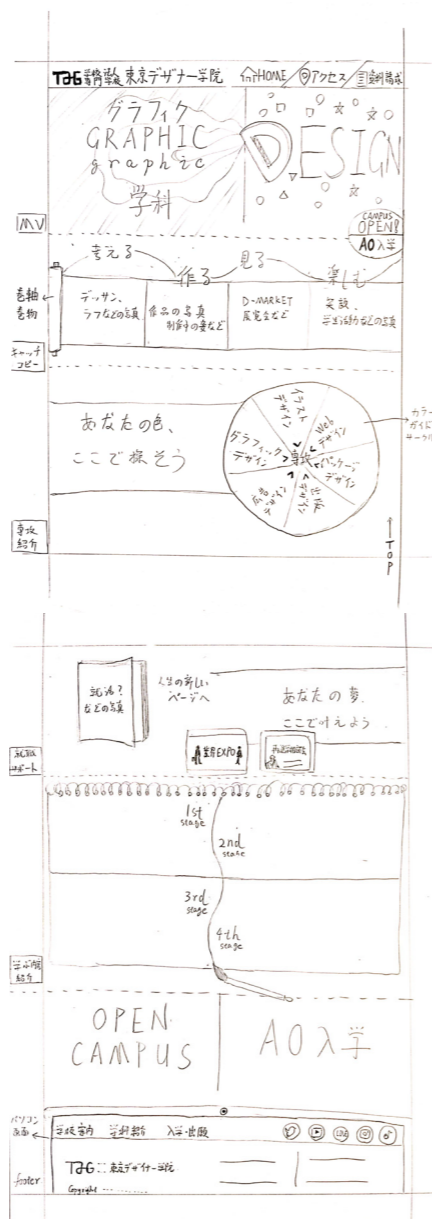 TDG 専門学校 東京デザイナー学院
HOME
アクセス
資料請求
グラフィク
GRAPHIC
graphic
学科
DESIGN
CAMPUS
OPEN!
AO入学
MV
考える
作る
見る
楽しむ
巻軸
巻物
デッサン、
ラフなどの写真
作品の写真
制作中の姿など
D-MARKET
展覧会など
笑顔、
学生活動などの写真
キャッチ
コピー
あなたの色、
ここで探そう
イラスト
デザイン
Web
デザイン
パッケージ
デザイン
出版
デザイン
広告
デザイン
グラフィック
デザイン
専攻
カラー
ガイド
サークル
専攻
紹介
↑TOP
就活?
などの写真
人生の新しい
ページへ
あなたの夢、
ここで叶えよう
業界EXPO
就職
サポート
1st
stage
2nd
stage
3rd
stage
4th
stage
学ぶ内容
紹介
OPEN
CAMPUS
AO入学
パソコン
画面
学校案内
学科紹介
入学・出願
LINE
TDG
東京デザイナー学院
Copyright
footer